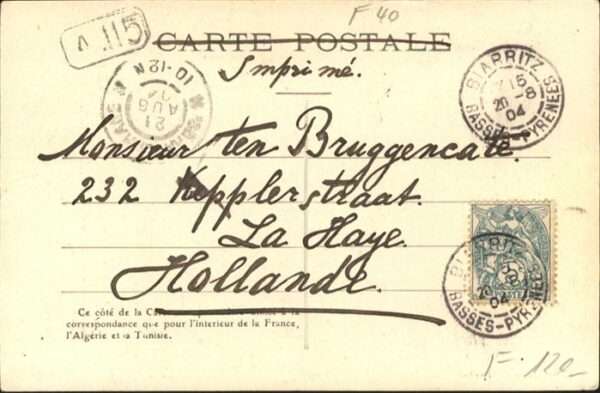 F 40
CARTE POSTALE
Imprimé.
10-12 N
21
AUG
BIARRITZ
20 -8
04
BASSES-PYRENEES
Monsieur ten Bruggencate.
232 Kepplerstraat.
La Haye.
Hollande.
BIARRITZ
20
04
BASSES-PYRENEES
Ce côté de la
correspondance que pour l'interieur de la France,
l'Algérie et la Tunisie.
F. 120-